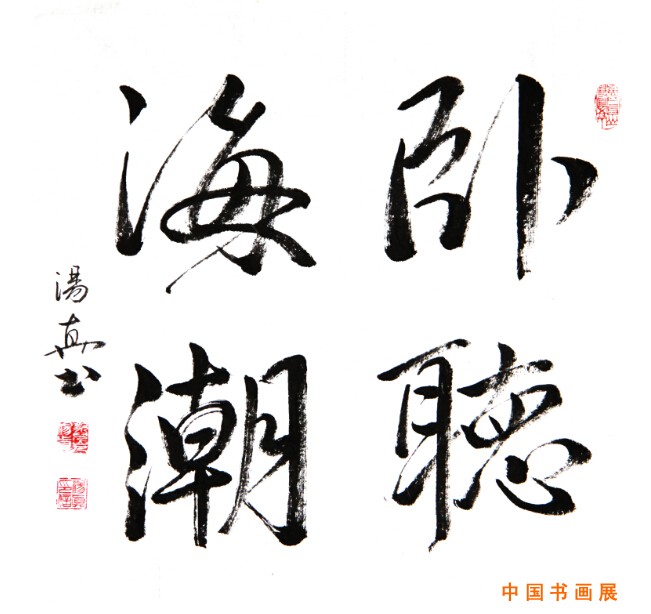 卧聽
海潮
湯真书
中国书画展